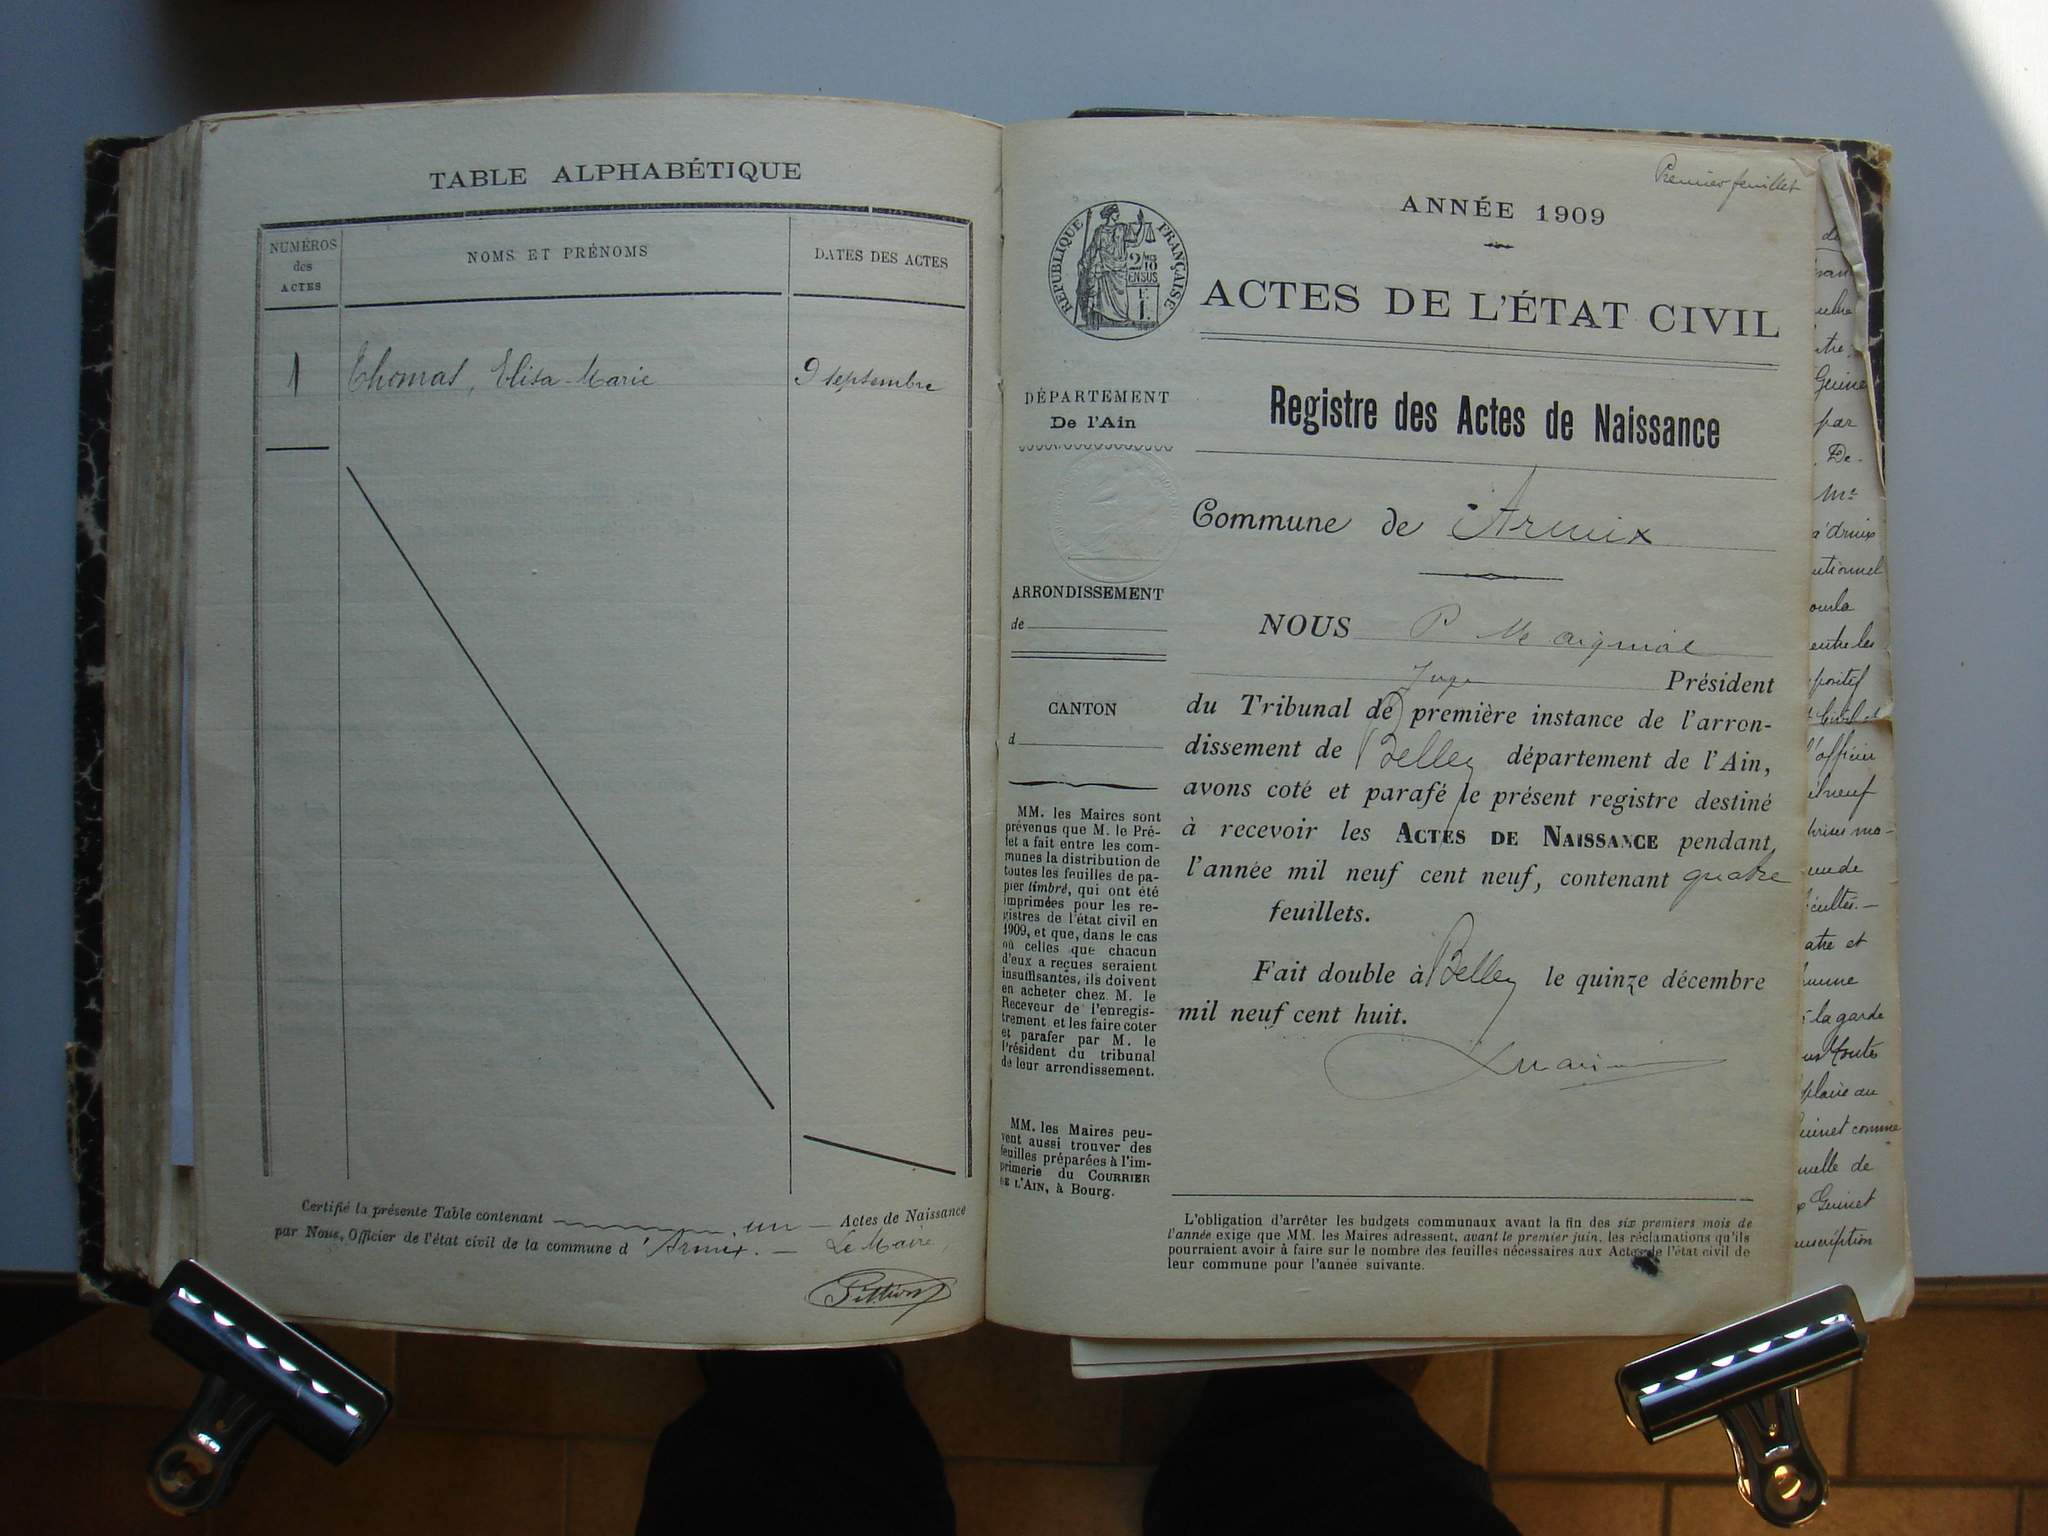 TABLE ALPHABÉTIQUE
NUMÉROS
des
ACTES
NOMS ET PRÉNOMS
DATES DES ACTES
1 Thomas, Elisa-Marie 9 septembre
Certifié la présente Table contenant un Actes de Naissance
par Nous, Officier de l'état civil de la commune d'Armix. — Le Maire,
Premier feuillet
ANNÉE 1909
RÉPUBLIQUE FRANÇAISE
ACTES DE L'ÉTAT CIVIL
DÉPARTEMENT
De l'Ain
ARRONDISSEMENT
de
CANTON
d
MM. les Maires sont
prévenus que M. le Pré-
fet a fait entre les com-
munes la distribution de
toutes les feuilles de pa-
pier timbré, qui ont été
imprimées pour les re-
gistres de l'état civil en
1909, et que, dans le cas
où celles que chacun
d'eux a reçues seraient
insuffisantes, ils doivent
en acheter chez M. le
Receveur de l'enregis-
trement et les faire coter
et parafer par M. le
Président du tribunal
de leur arrondissement.
MM. les Maires peu-
vent aussi trouver des
feuilles préparées à l'im-
primerie du COURRIER
DE L'AIN, à Bourg.
Registre des Actes de Naissance
Commune de Armix
NOUS P
Juge Président
du Tribunal de première instance de l'arron-
dissement de Belley département de l'Ain,
avons coté et parafé le présent registre destiné
à recevoir les ACTES DE NAISSANCE pendant
l'année mil neuf cent neuf, contenant quatre
feuillets.
Fait double à Belley le quinze décembre
mil neuf cent huit.
L'obligation d'arrêter les budgets communaux avant la fin des six premiers mois de
l'année exige que MM. les Maires adressent, avant le premier juin, les réclamations qu'ils
pourraient avoir à faire sur le nombre des feuilles nécessaires aux Actes de l'état civil de
leur commune pour l'année suivante.
par
De-
Me
entre les
l'officier
et
la garde
comme
de
Guinet